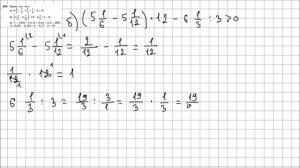 б) (5 1/6 - 5 1/12) · 12 - 6 1/3 : 3 > 0
5 1/6 \2 - 5 1/12 \1 = 2/12 - 1/12 = 1/12
1/12 · 12 = 1
6 1/3 : 3 = 19/3 : 3/1 = 19/3 · 1/3 = 19/